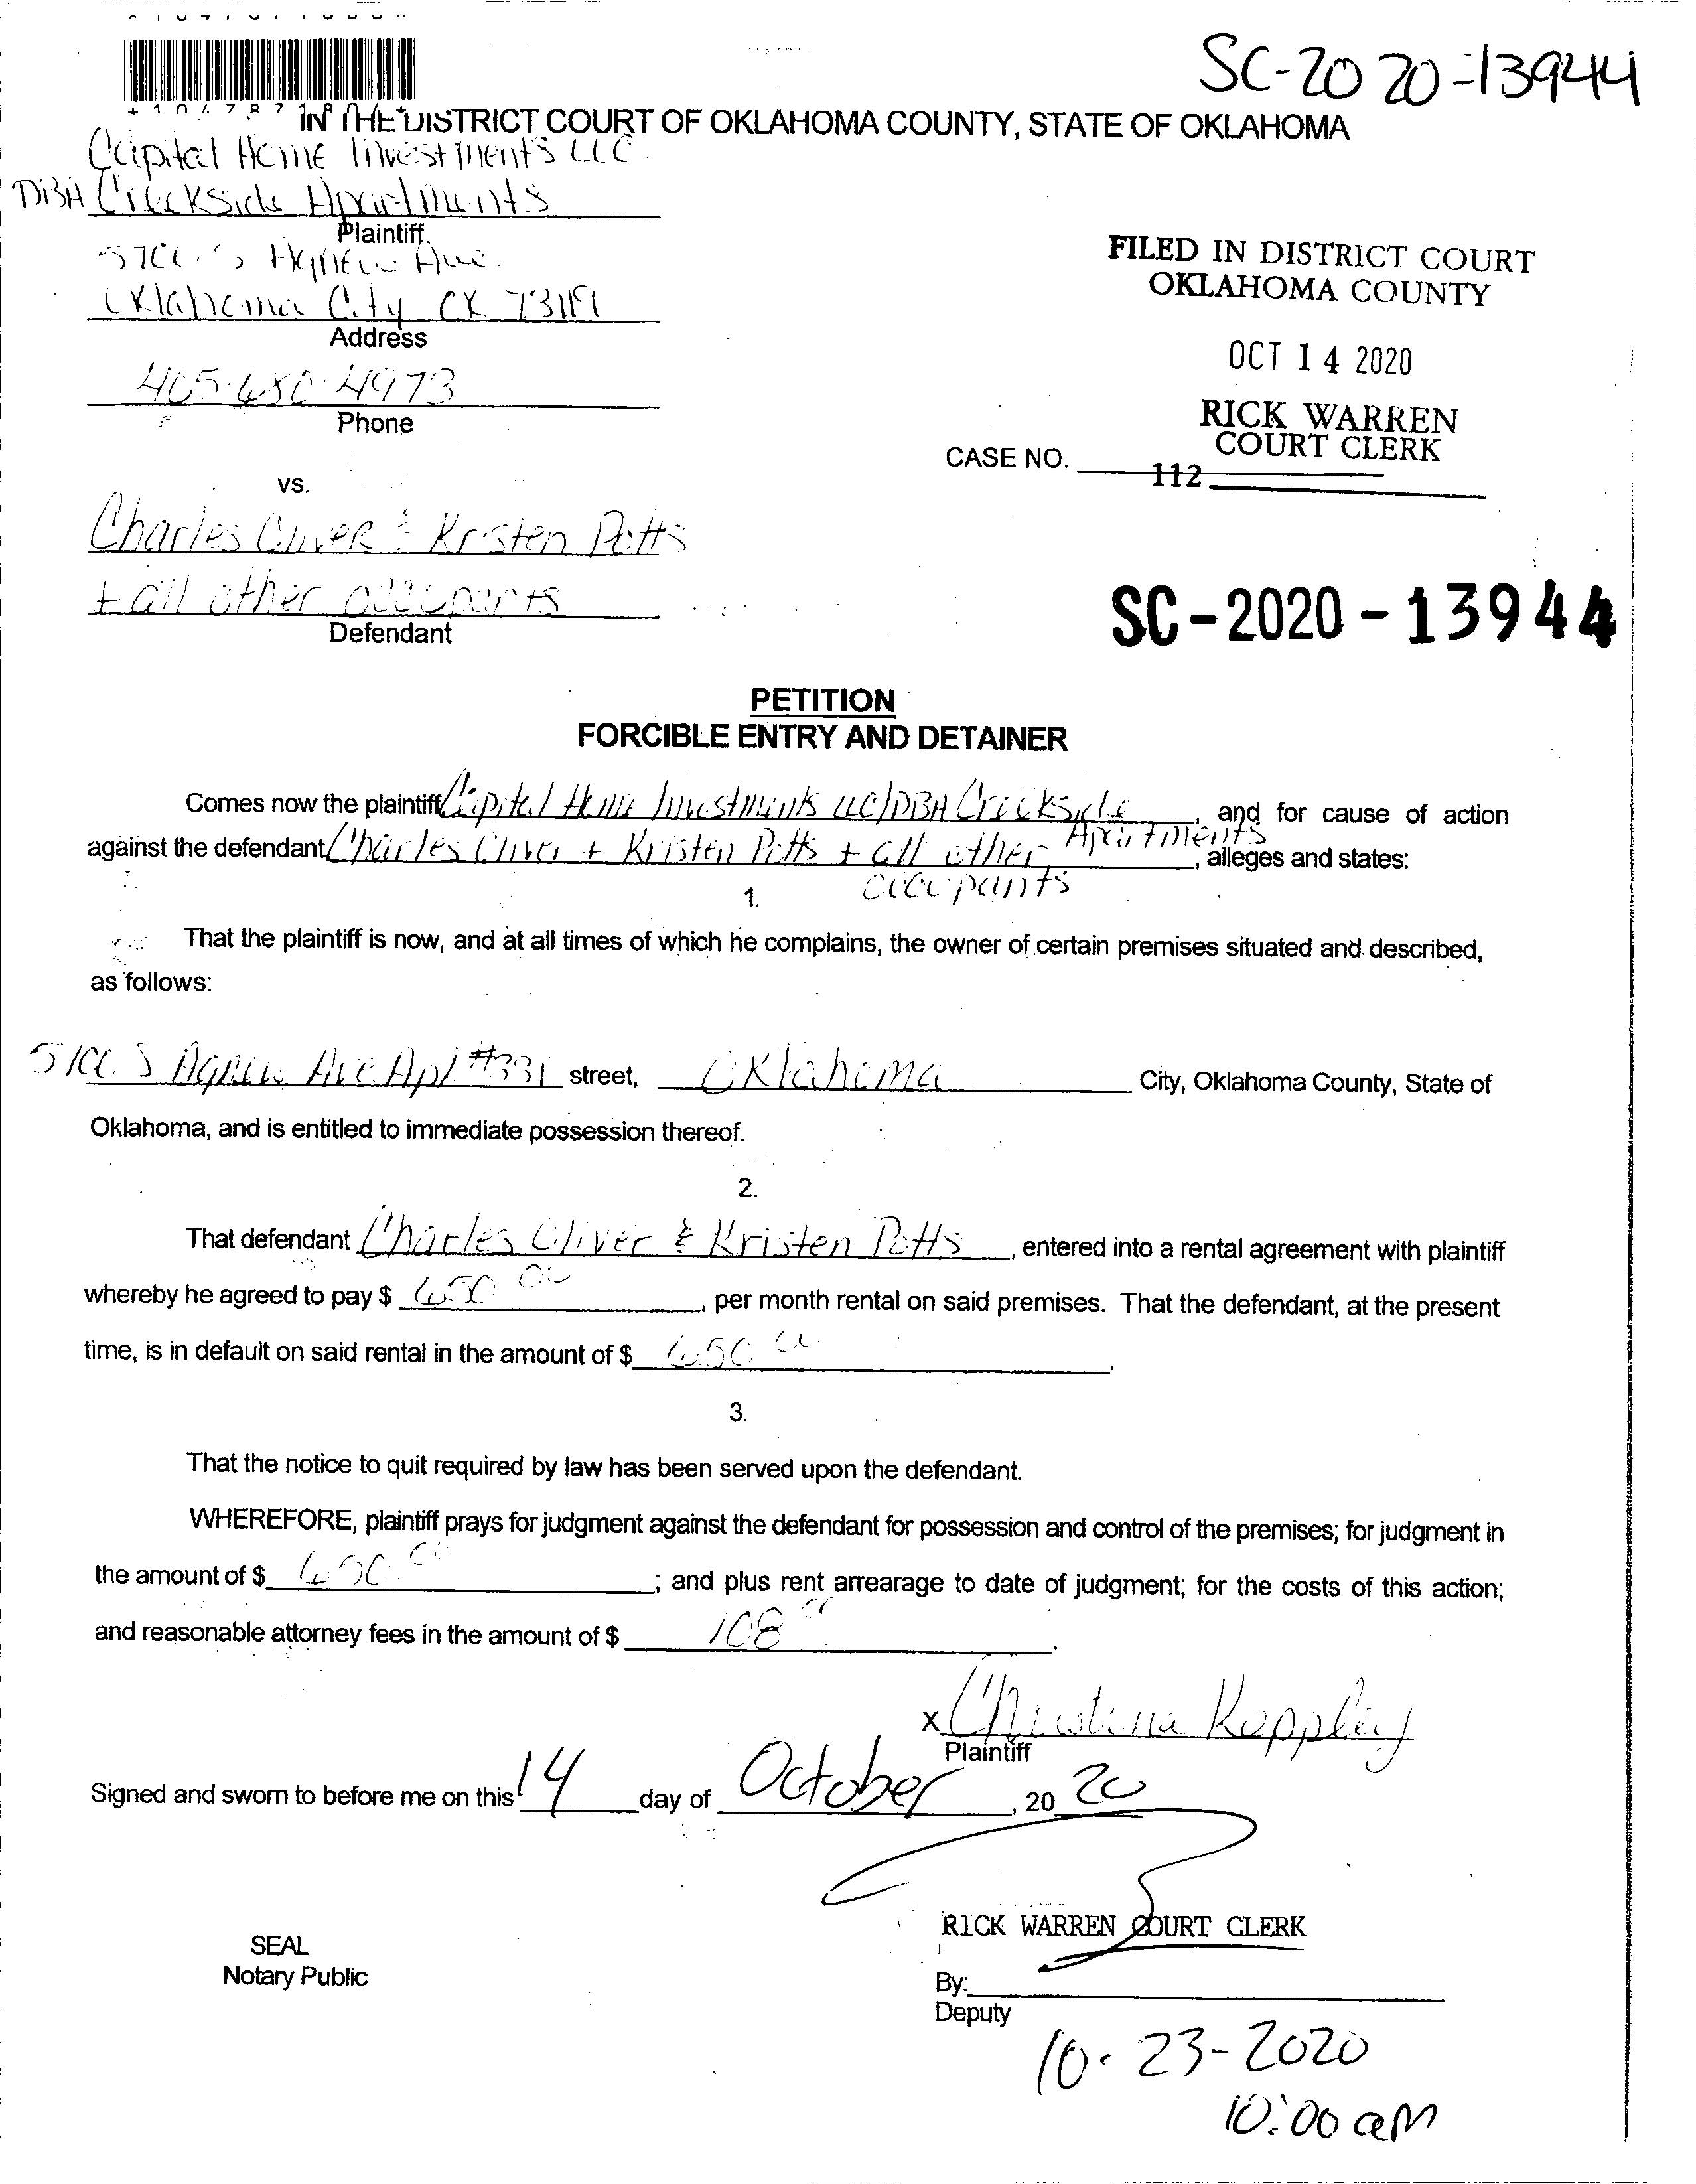 SC-2020-13944
IN THE DISTRICT COURT OF OKLAHOMA COUNTY, STATE OF OKLAHOMA
Capital Home Investments LLC
DBA Creekside Apartments
Plaintiff
S Agnew Ave.
Oklahoma City OK 73119
Address
405-680-4973
Phone
FILED IN DISTRICT COURT
OKLAHOMA COUNTY
OCT 14 2020
RICK WARREN
COURT CLERK
CASE NO.
112
vs.
Charles Oliver & Kristen Potts
+ all other occupants
Defendant
SC-2020-13944
PETITION
FORCIBLE ENTRY AND DETAINER
Comes now the plaintiff Capital Home Investments LLC/DBA Creekside Apartments, and for cause of action
against the defendant Charles Oliver + Kristen Potts + all other occupants, alleges and states:
1.
That the plaintiff is now, and at all times of which he complains, the owner of certain premises situated and described,
as follows:
S Agnew Ave Apt #331 street, Oklahoma City, Oklahoma County, State of
Oklahoma, and is entitled to immediate possession thereof.
2.
That defendant Charles Oliver & Kristen Potts, entered into a rental agreement with plaintiff
whereby he agreed to pay $ 650 00, per month rental on said premises. That the defendant, at the present
time, is in default on said rental in the amount of $ 650 00.
3.
That the notice to quit required by law has been served upon the defendant.
WHEREFORE, plaintiff prays for judgment against the defendant for possession and control of the premises; for judgment in
the amount of $ 650 00; and plus rent arrearage to date of judgment; for the costs of this action;
and reasonable attorney fees in the amount of $ 108.
x Christina Koppley
Plaintiff
Signed and sworn to before me on this 14 day of October, 20 20
RICK WARREN COURT CLERK
SEAL
Notary Public
By:
Deputy
10-23-2020
10:00 am